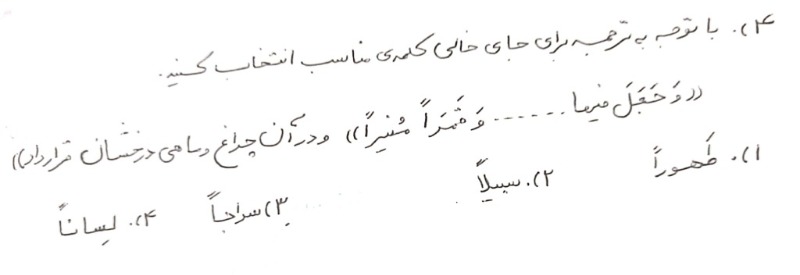 ۴). با توجه به ترجمه برای جای خالی کلمه‌ی مناسب انتخاب کنید.
((وَ جَعَلَ فیها ....... وَ قَمَراً مُنیراً)) و در آن چراغ و ماهی درخشان قرار داد))
۱). طَهوراً ۲). سبیلاً ۳) سراجاً ۴). لِساناً